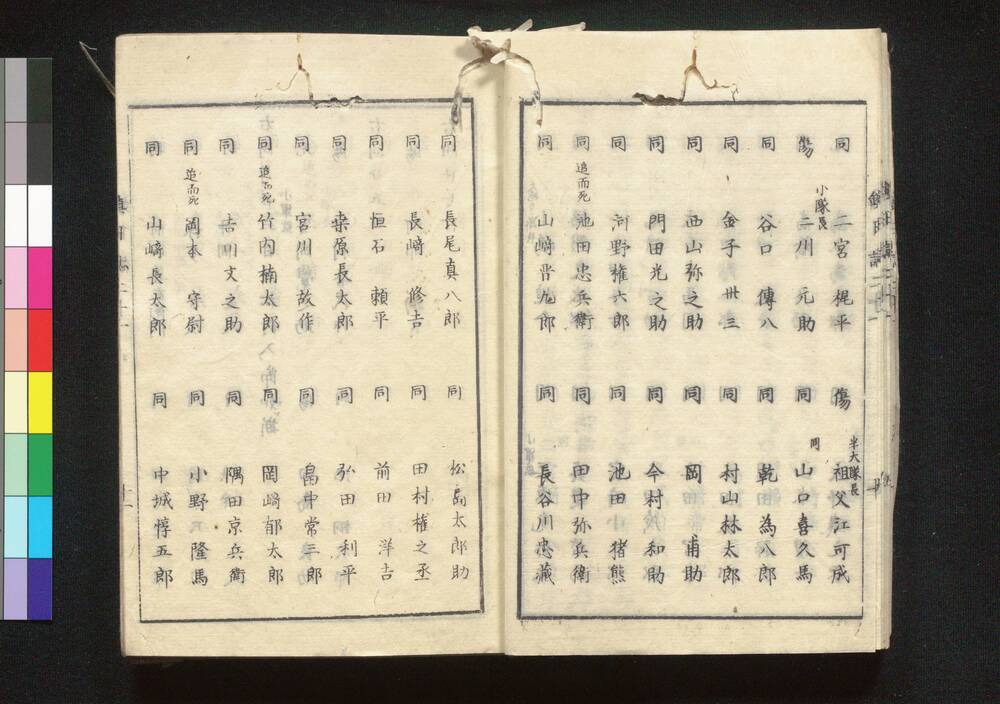 同 二宮梶平 傷 半大隊長 祖父江可成
傷 小隊長 二川元助 同 同 山口喜久馬
同 谷口傳八 同 乾為八郎
同 金子卅三 同 村山林太郎
同 西山弥之助 同 岡甫助
同 門田光之助 同 今村和助
同 河野権六郎 同 池田猪熊
同 追而死 池田忠兵衛 同 田中弥兵衛
同 山﨑晋九郎 同 長谷川忠藏
同 長尾真八郎 同 松島太郎助
同 長﨑修吉 同 田村権之丞
同 恒石頼平 同 前田洋吉
同 桒原長太郎 同 弘田利平
同 宮川故作 同 畠中常三郎
同 追而死 竹内楠太郎 同 岡﨑郁太郎
同 吉川文之助 同 隅田京兵衛
同 追而死 岡本守尉 同 小野隆馬
同 山﨑長太郎 同 中城惇五郎